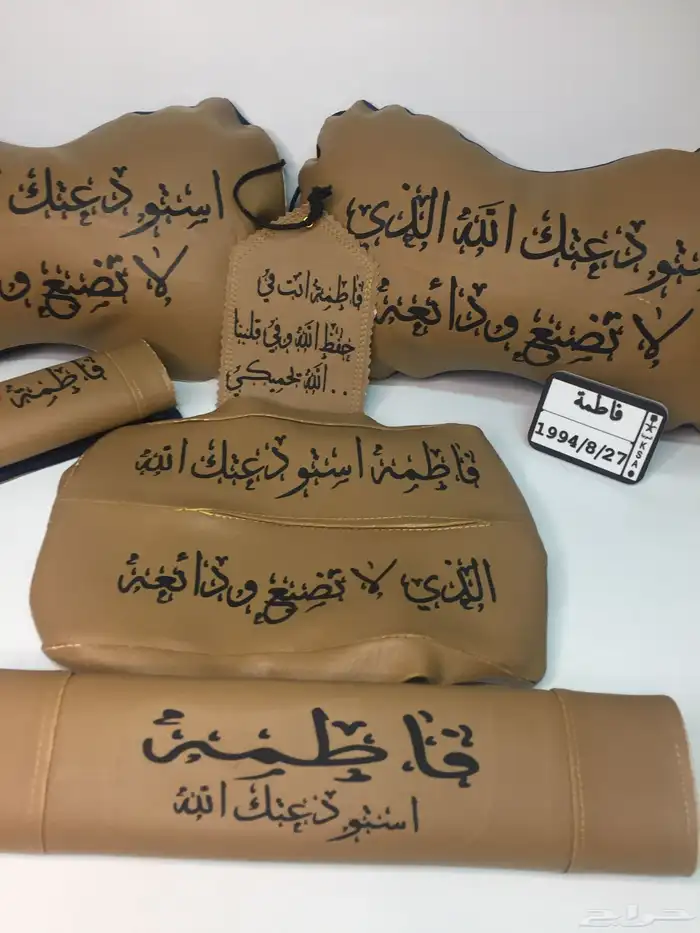 استودعتك
لا تضيع و
ستودعتك الله الذي
لا تضيع ودائعه
فاطمة انت في
حفظ الله وفي قلبنا
الله يحميكي ..
فاطمة
فاطمة
1994/8/27
KSA
فاطمة استودعتك الله
الذي لا تضيع ودائعه
فاطمة
استودعتك الله
حراج